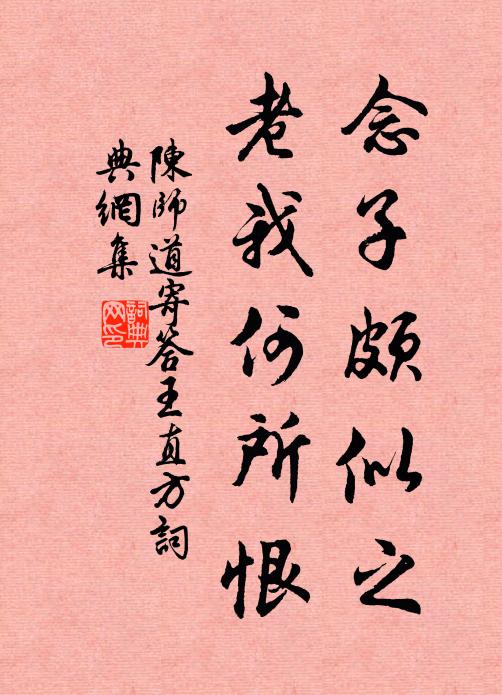 念子頗似之
老我何所恨
陳師道寄答王直方詞
典網集
詞典网印